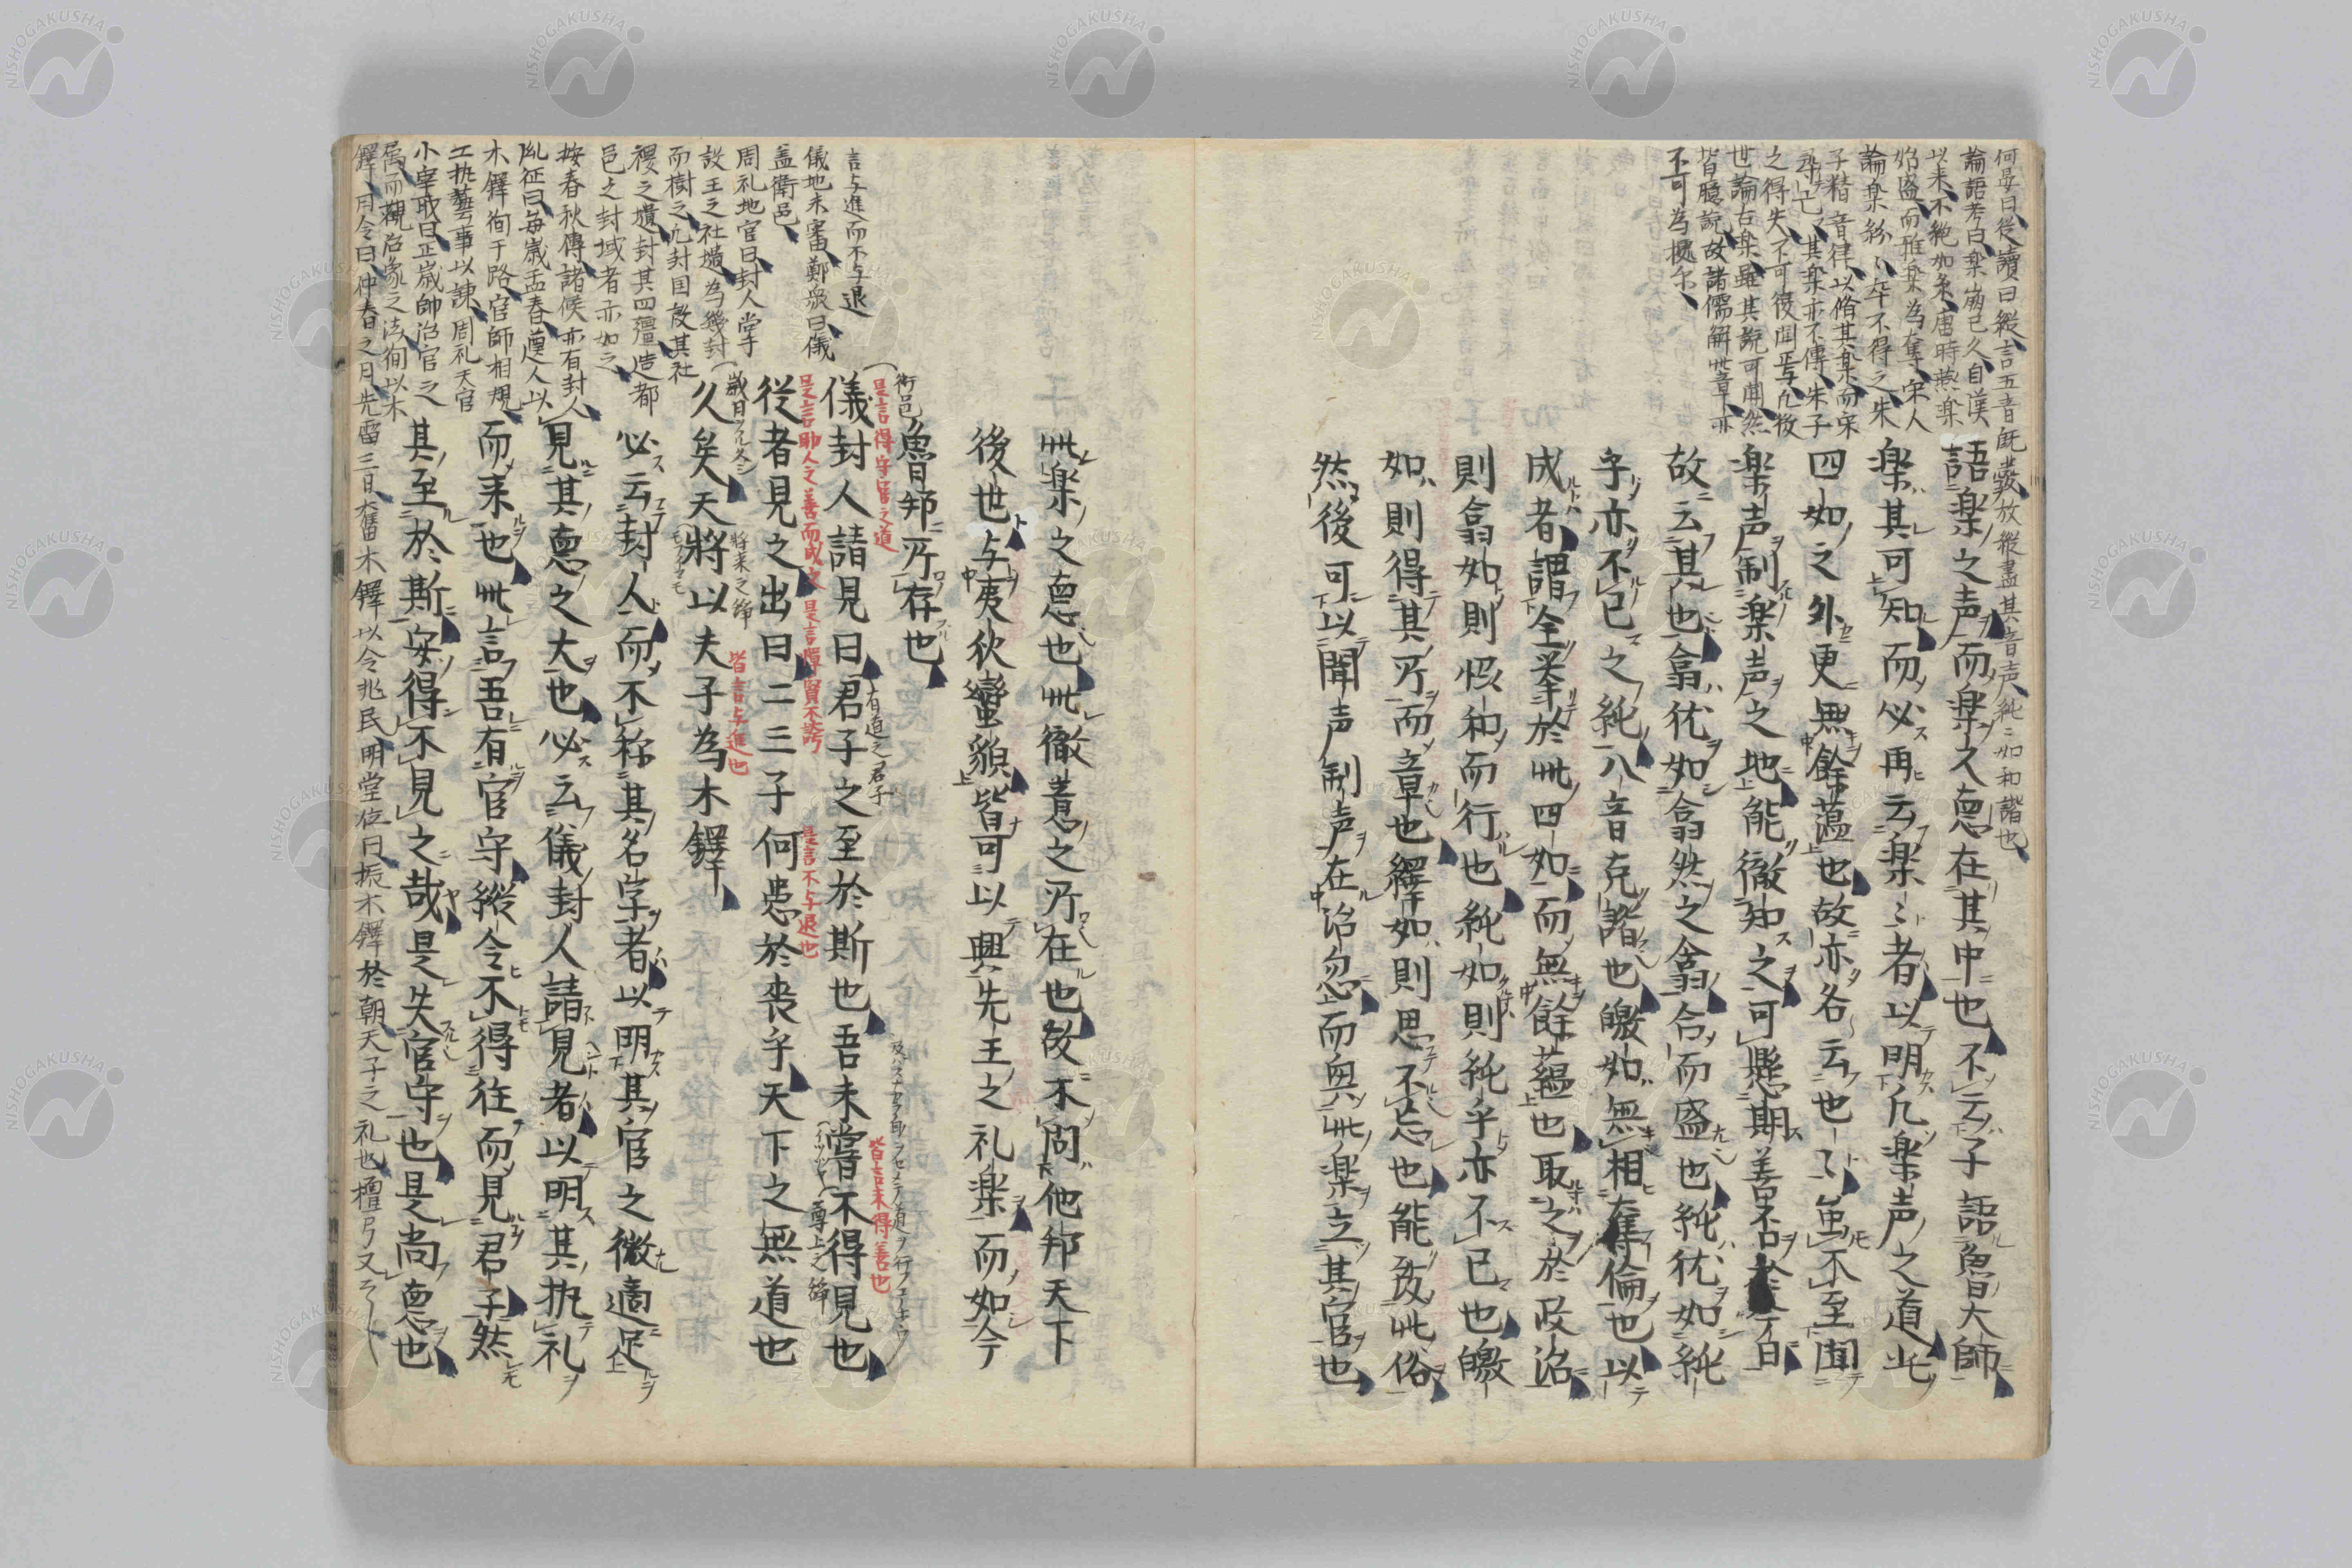 何晏曰従讀曰縦言五音既發放縦盡其音声純〻如和諧也
論語考曰楽崩已久自漢
以来不純如矣唐時燕楽
始盛而雅楽為奪宋人
論楽紛〻卒不得之朱
子精音律以脩其楽而宋
尋亡其楽亦不傳朱子
之得失不可復聞焉凡後
世論古楽雖其説可聞然
皆臆説故諸儒解此章亦
不可為據尓
語楽之声而楽之悳在其中也不云子語魯大師
楽其可知而必再云楽〻者以明凡楽声之道此
四如之外更無餘蘊也故亦各云也〻虽不至聞
楽声制楽声之地能徹知之可懸期善否
故云其也翕优如翕然之翕合而盛也純优如純
乎亦不已之純八音克諧也皦如無相奪倫也以
成者謂全挙於此四如而無餘蘊也取之於政治
則翕如則悏和而行也純如則純乎亦不已也皦
如則得其所而章也繹如則思不忘也能致此俗
然後可以聞声制声在治忽而與此楽立其官也
此楽之悳也此徹意之所在也故不問他邦天下
後世与夷狄蠻貊皆可以興先王之礼楽而如今
魯邦所存也
衛邑
言与進而不与退
儀地未審鄭衆曰儀
盖衛邑
周礼地官曰封人掌
設王之社壝為畿封
而樹之凡封国設其社
稷之壝封其四疆造都
邑之封域者亦如之
按春秋傳諸侯亦有封人
胤征曰毎歳孟春遒人以
木鐸徇于路官師相規
工執藝事以諌周礼天官
小宰職曰正歳帥治官之
属而觀治象之法徇以木
鐸月令曰仲春之月先雷三日奮木鐸以令兆民明堂位曰振木鐸於朝天子之礼也檀弓又云〻
是言得守官之道
儀封人請見曰君子之至於斯也吾未嘗不得見也
有道之君子
皆言未得善也
尊上之辞
是言助人之善而成之
是言憚賢不誇
是言不与退也
従者見之出曰二三子何患於喪乎天下之無道也
歳日
将来之辞
皆言与進也
久矣天將以夫子為木鐸
必云封人而不称其名字者以明其官之微適足
見其悳之大也必云儀封人請見者以明其執礼
而来也此言吾有官守縦令不得往而見君子然
其至於斯安得不見之哉是失官守也是尚悳也